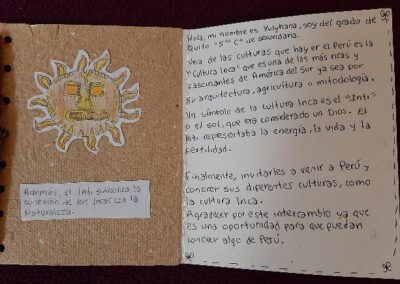 Además, el Inti simboliza la
conexión de los Incas con la
Naturaleza.
Hola, mi nombre es Yuyhana, soy del grado de
Quito "5to C" de secundaria.
Una de las culturas que hay er el Perú es la
"Cultura Inca" que es una de las más ricas y
fascinantes de América del Sur ya sea por
su arquitectura, agricultura o mitodología.
Un símbolo de la cultura Inca es el "Inti"
o el sol, que era considerado un Dios. El
Inti representaba la energía, la vida y la
fertilidad.
Finalmente, invitarles a venir a Perú y
conocer sus diferentes culturas, como
la cultura Inca.
Agradecer por este intercambio ya que
es una oportunidad para que puedan
conocer algo de Perú.